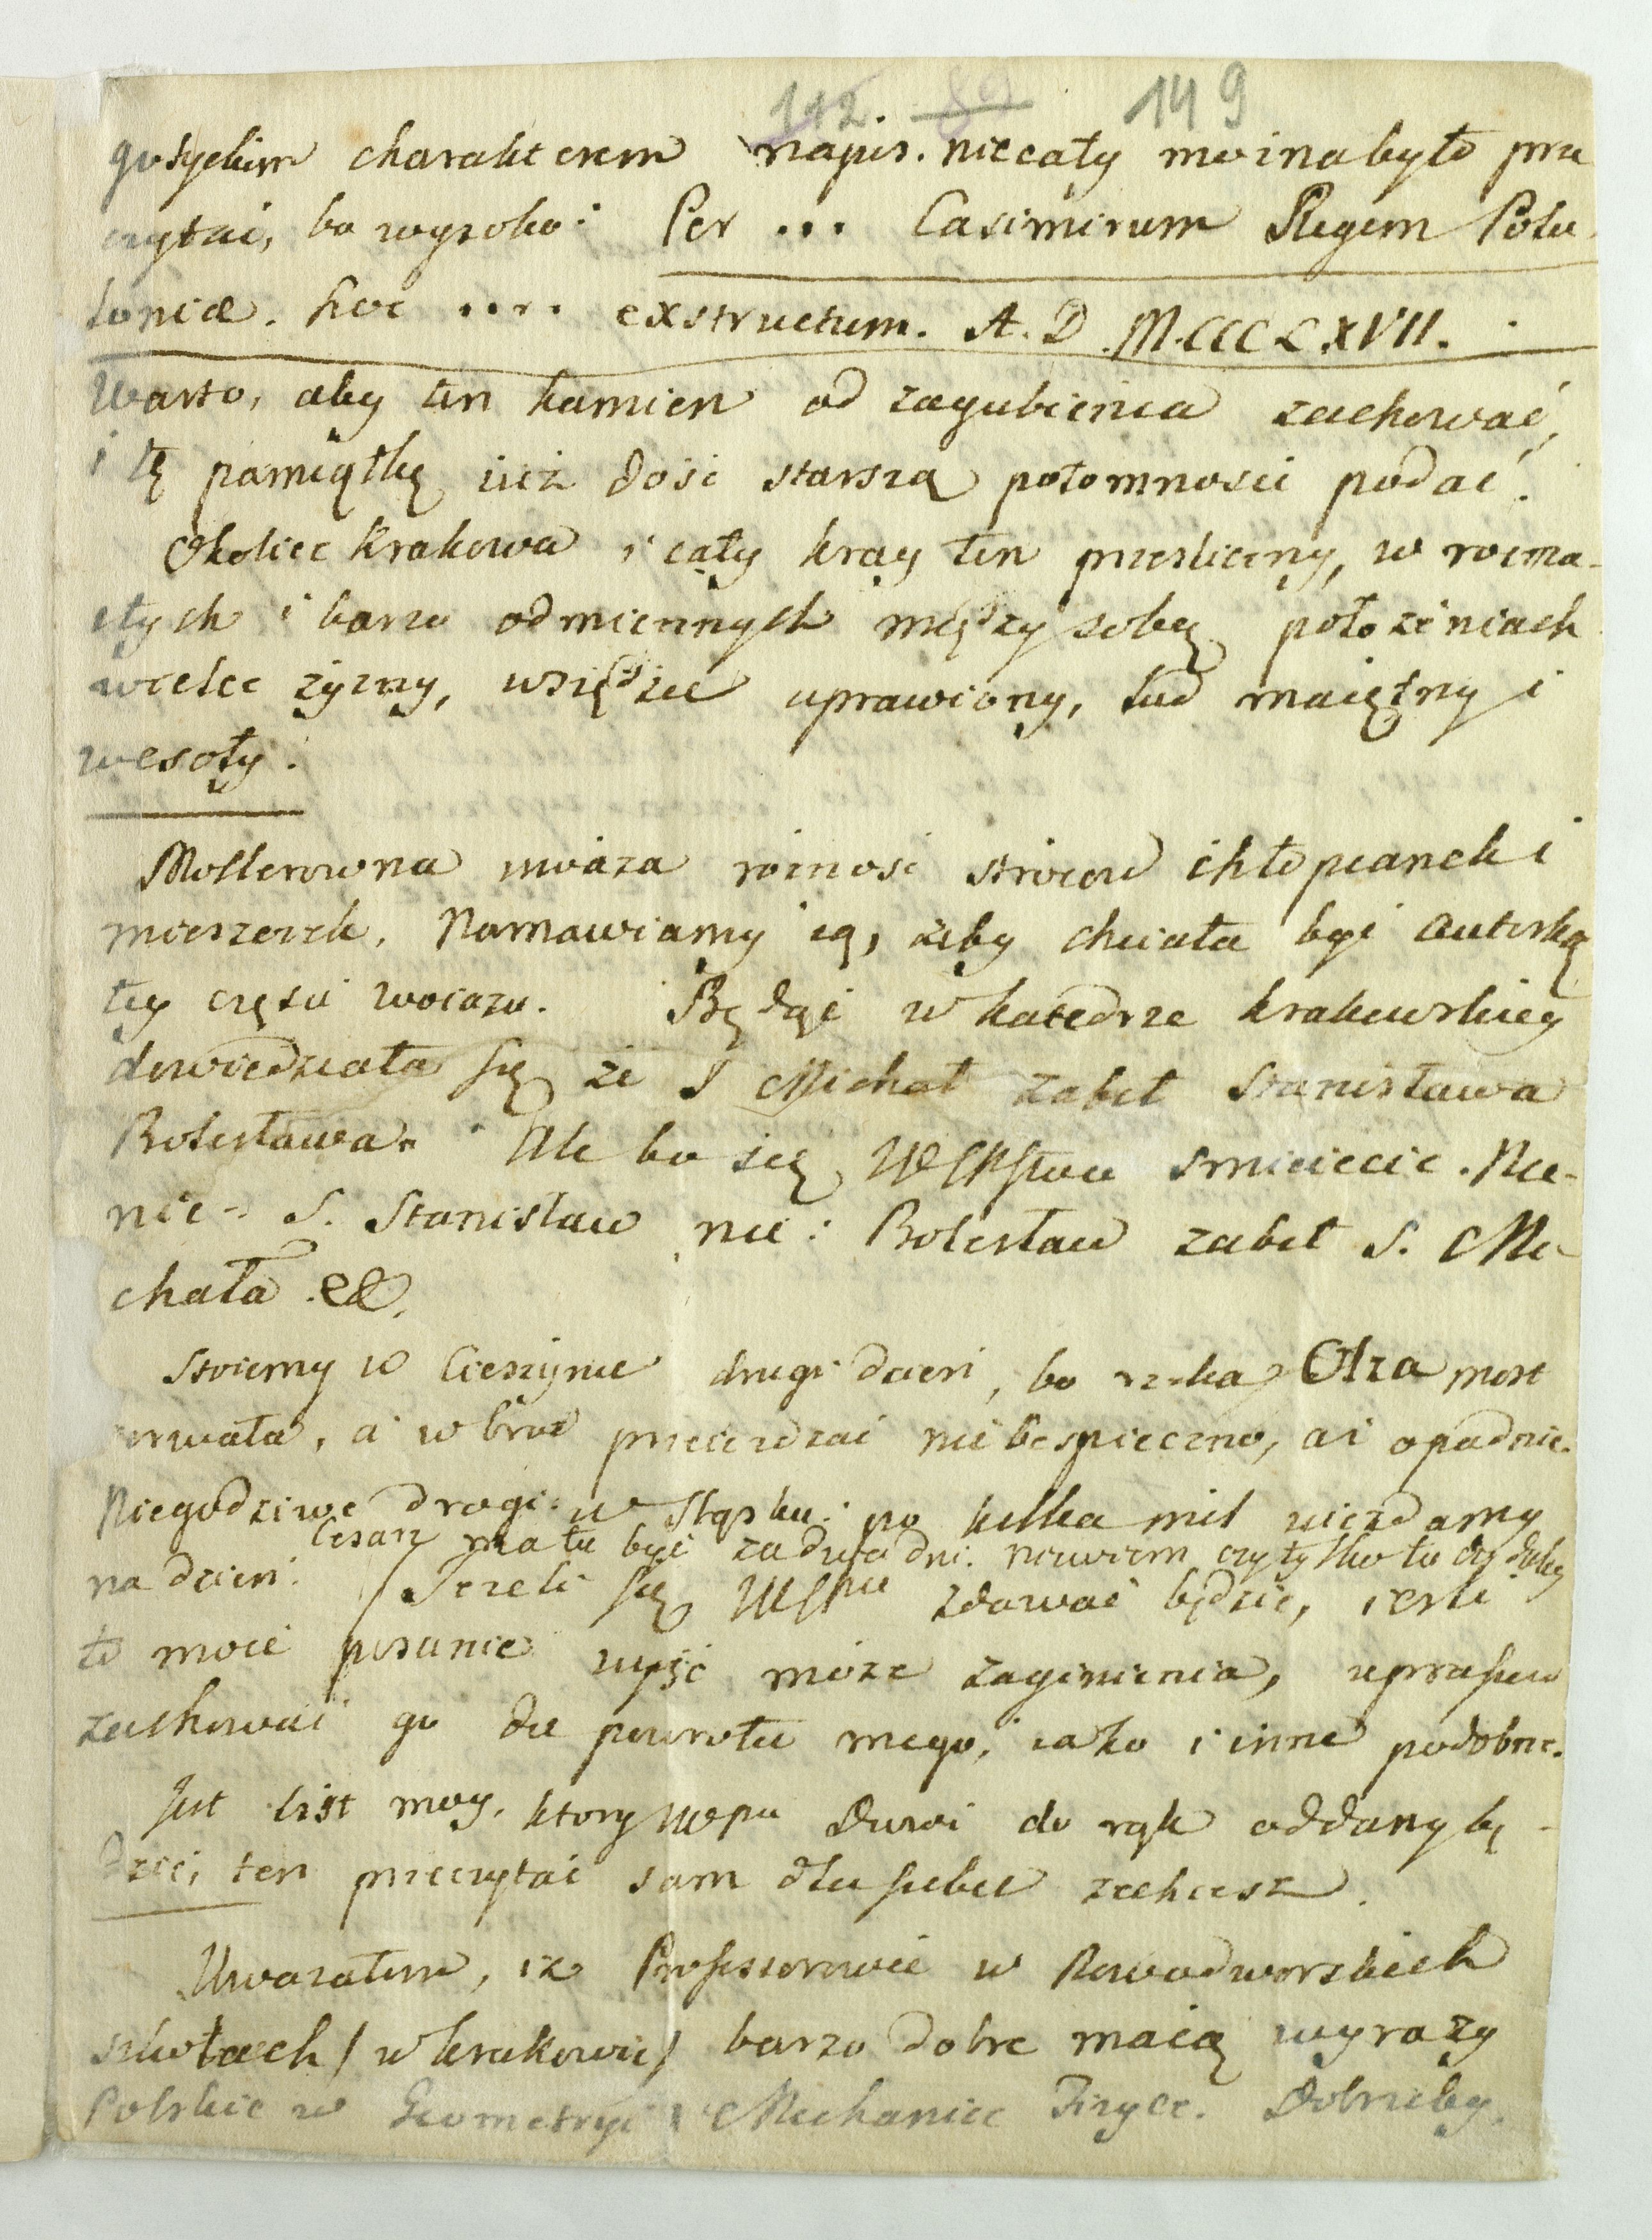 112 89 149
gotyckim charakterem napis. niecały można było prze
czytać, bo wysoko: Per ... Casimirum Regem Polo
loniæ. hoc .... exstructum. A. D. M.CCCLXVII.
Warto, aby ten kamien od zagubienia zachować,
i tę pamiątkę iuż dość starszą potomnosci podać.
Okolice Krakowa i cały kray ten prześliczny, w rozma-
itych i barzo odmiennych między sobą położeniach
wielce żyzny, wszędzie uprawiony, lud maiętny i
wesoły.
Mollerowna uważa rożność stroiow chłopianek i
mieszczek. Namawiamy ią, żeby chciała być autorką
tey części woiażu. Będąc w katedrze krakowskiey
dowiedziała się że S Michał zabił Stanisława
Bolesława. Ale bo się WCPstwo śmieiecie. Nie-
nie - S. Stanisław nie: Bolesław zabił S. Mi-
chała. etc.
Stoiemy w Cieszynie drugi dzień, bo rzeka Olza most
zerwała, a w bród przeieżdzać niebespieczno, aż opadnie.
Niegodziwe drogi w Sląsku: po kilka mil uieżdzamy
Cesarz ma tu być za dwa dni. niewiem czy tylko tu czy daley
na dzień. Jeżeli się WCPnu zdawać będzie, iesli
to moie pisanie uyść może zaginienia, upraszam
zachować go do powrotu mego, iako i inne podobne.
Jest list moy, ktory WCPnu do rąk oddany bę-
dzie, ten przeczytać sam dla siebie zechcesz.
Uważałem, iż Professorowie w Nowodworskich
szkołach / w Krakowie / barzo dobre maią wyrazy
Polskie w Geometryi i Mechanice Fizyce. Dobrzeby